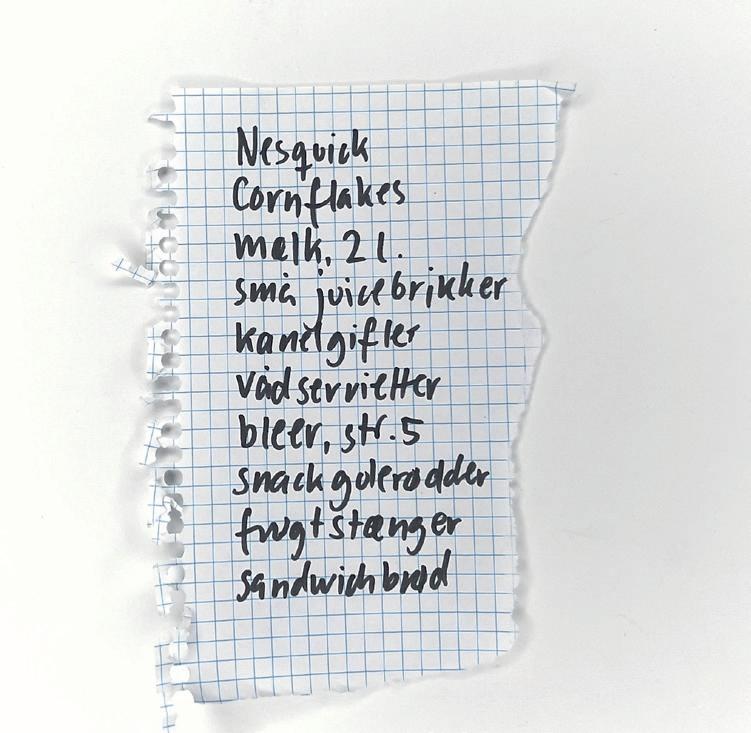 Nesquick
Cornflakes
mælk, 2 l.
små juicebrikker
kanelgifler
vådservietter
bleer, str. 5
snackgulerødder
frugtstænger
sandwichbrød